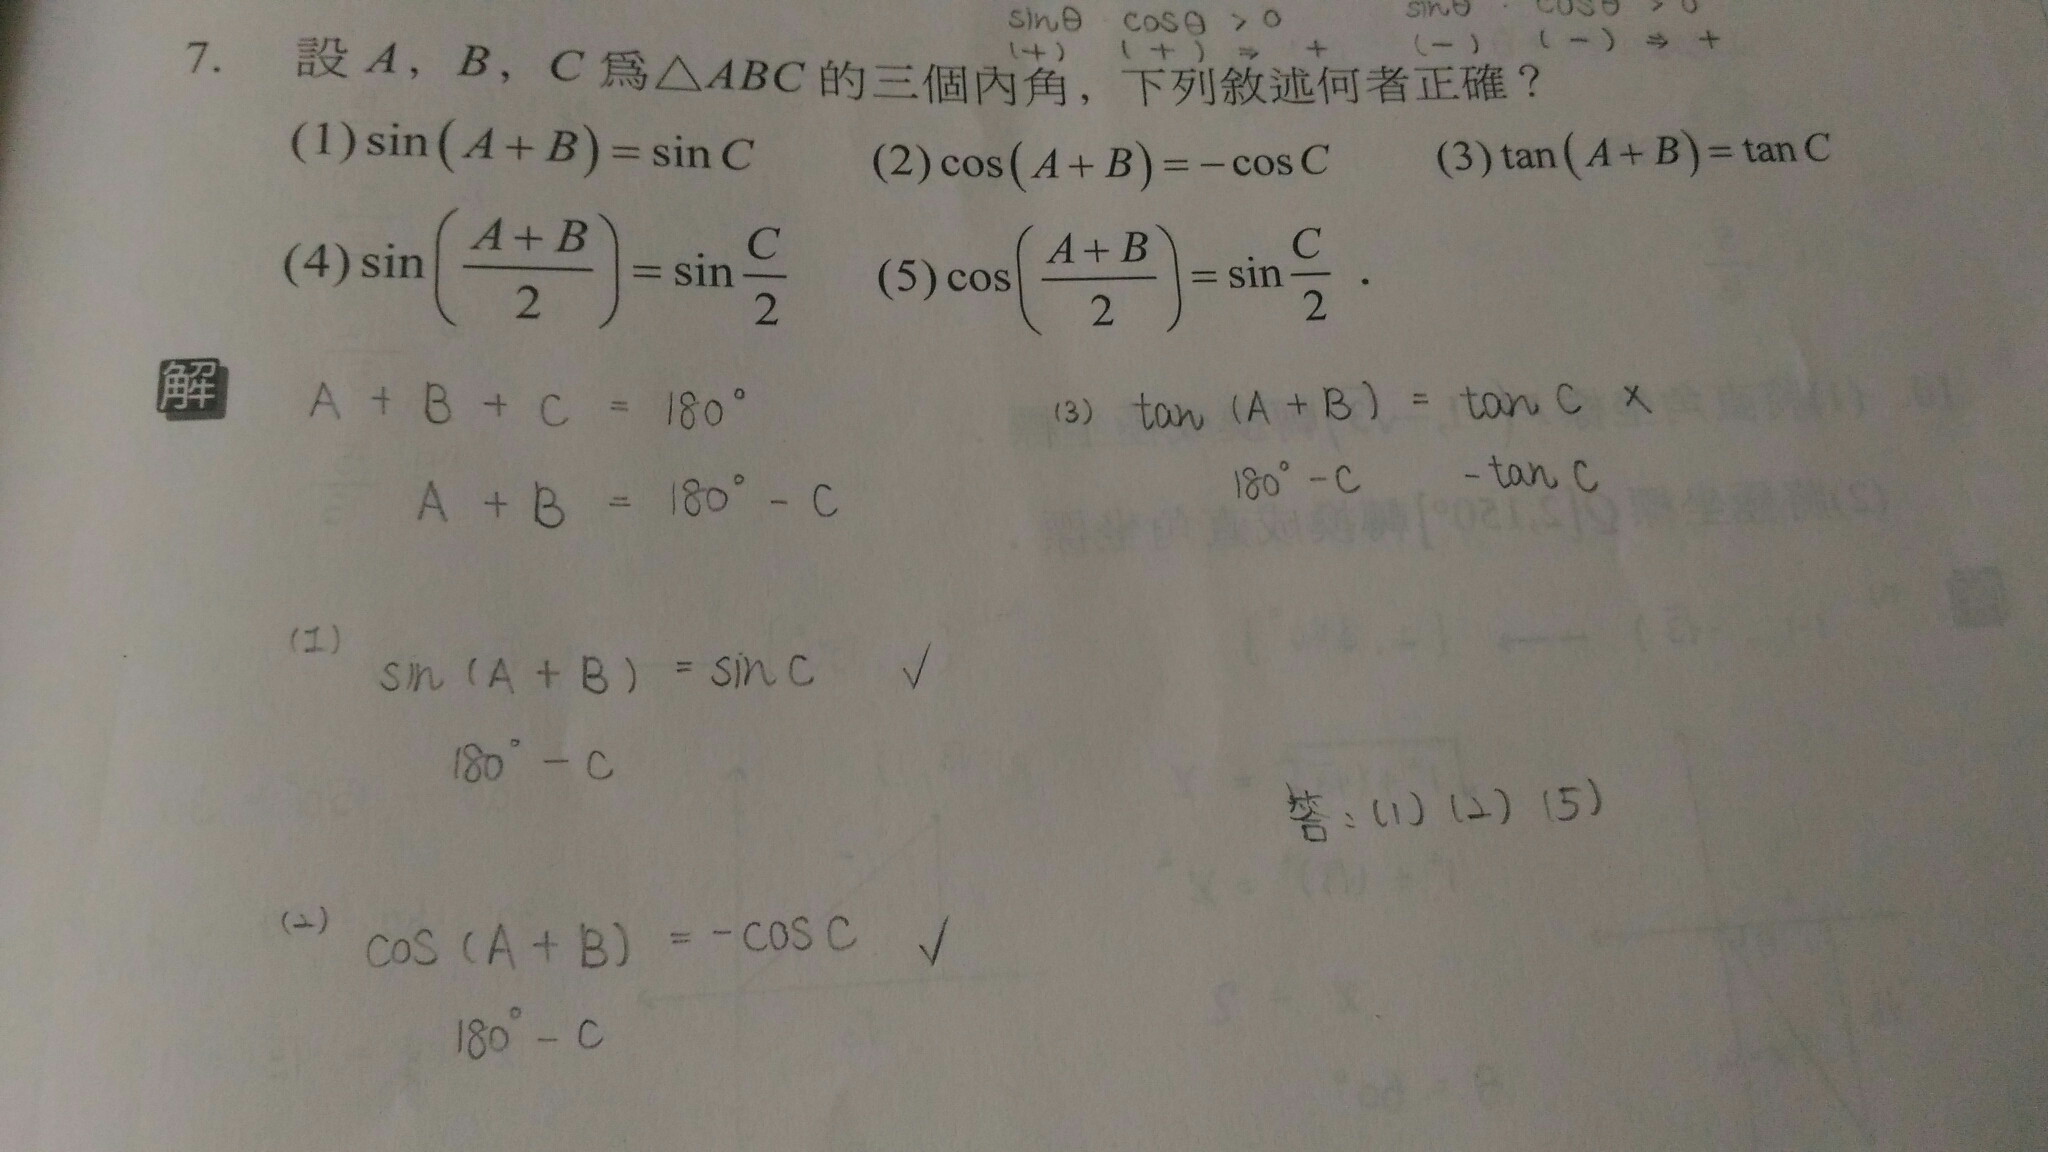 sinθ · cosθ > 0 sinθ · cosθ > 0
(+) (+) ⇒ + (-) (-) ⇒ +
7. 設 A，B，C 為△ABC 的三個內角，下列敘述何者正確？
(1) sin(A+B)=sin C (2) cos(A+B)=-cos C (3) tan(A+B)=tan C
(4) sin((A+B)/2)=sin C/2 (5) cos((A+B)/2)=sin C/2．
解
A + B + C = 180°
A + B = 180° - C
(1)
sin (A + B) = sin C ✓
180° - C
(2)
cos (A + B) = -cos C ✓
180° - C
(3) tan (A + B) = tan C ×
180° - C -tan C
答：(1) (2) (5)